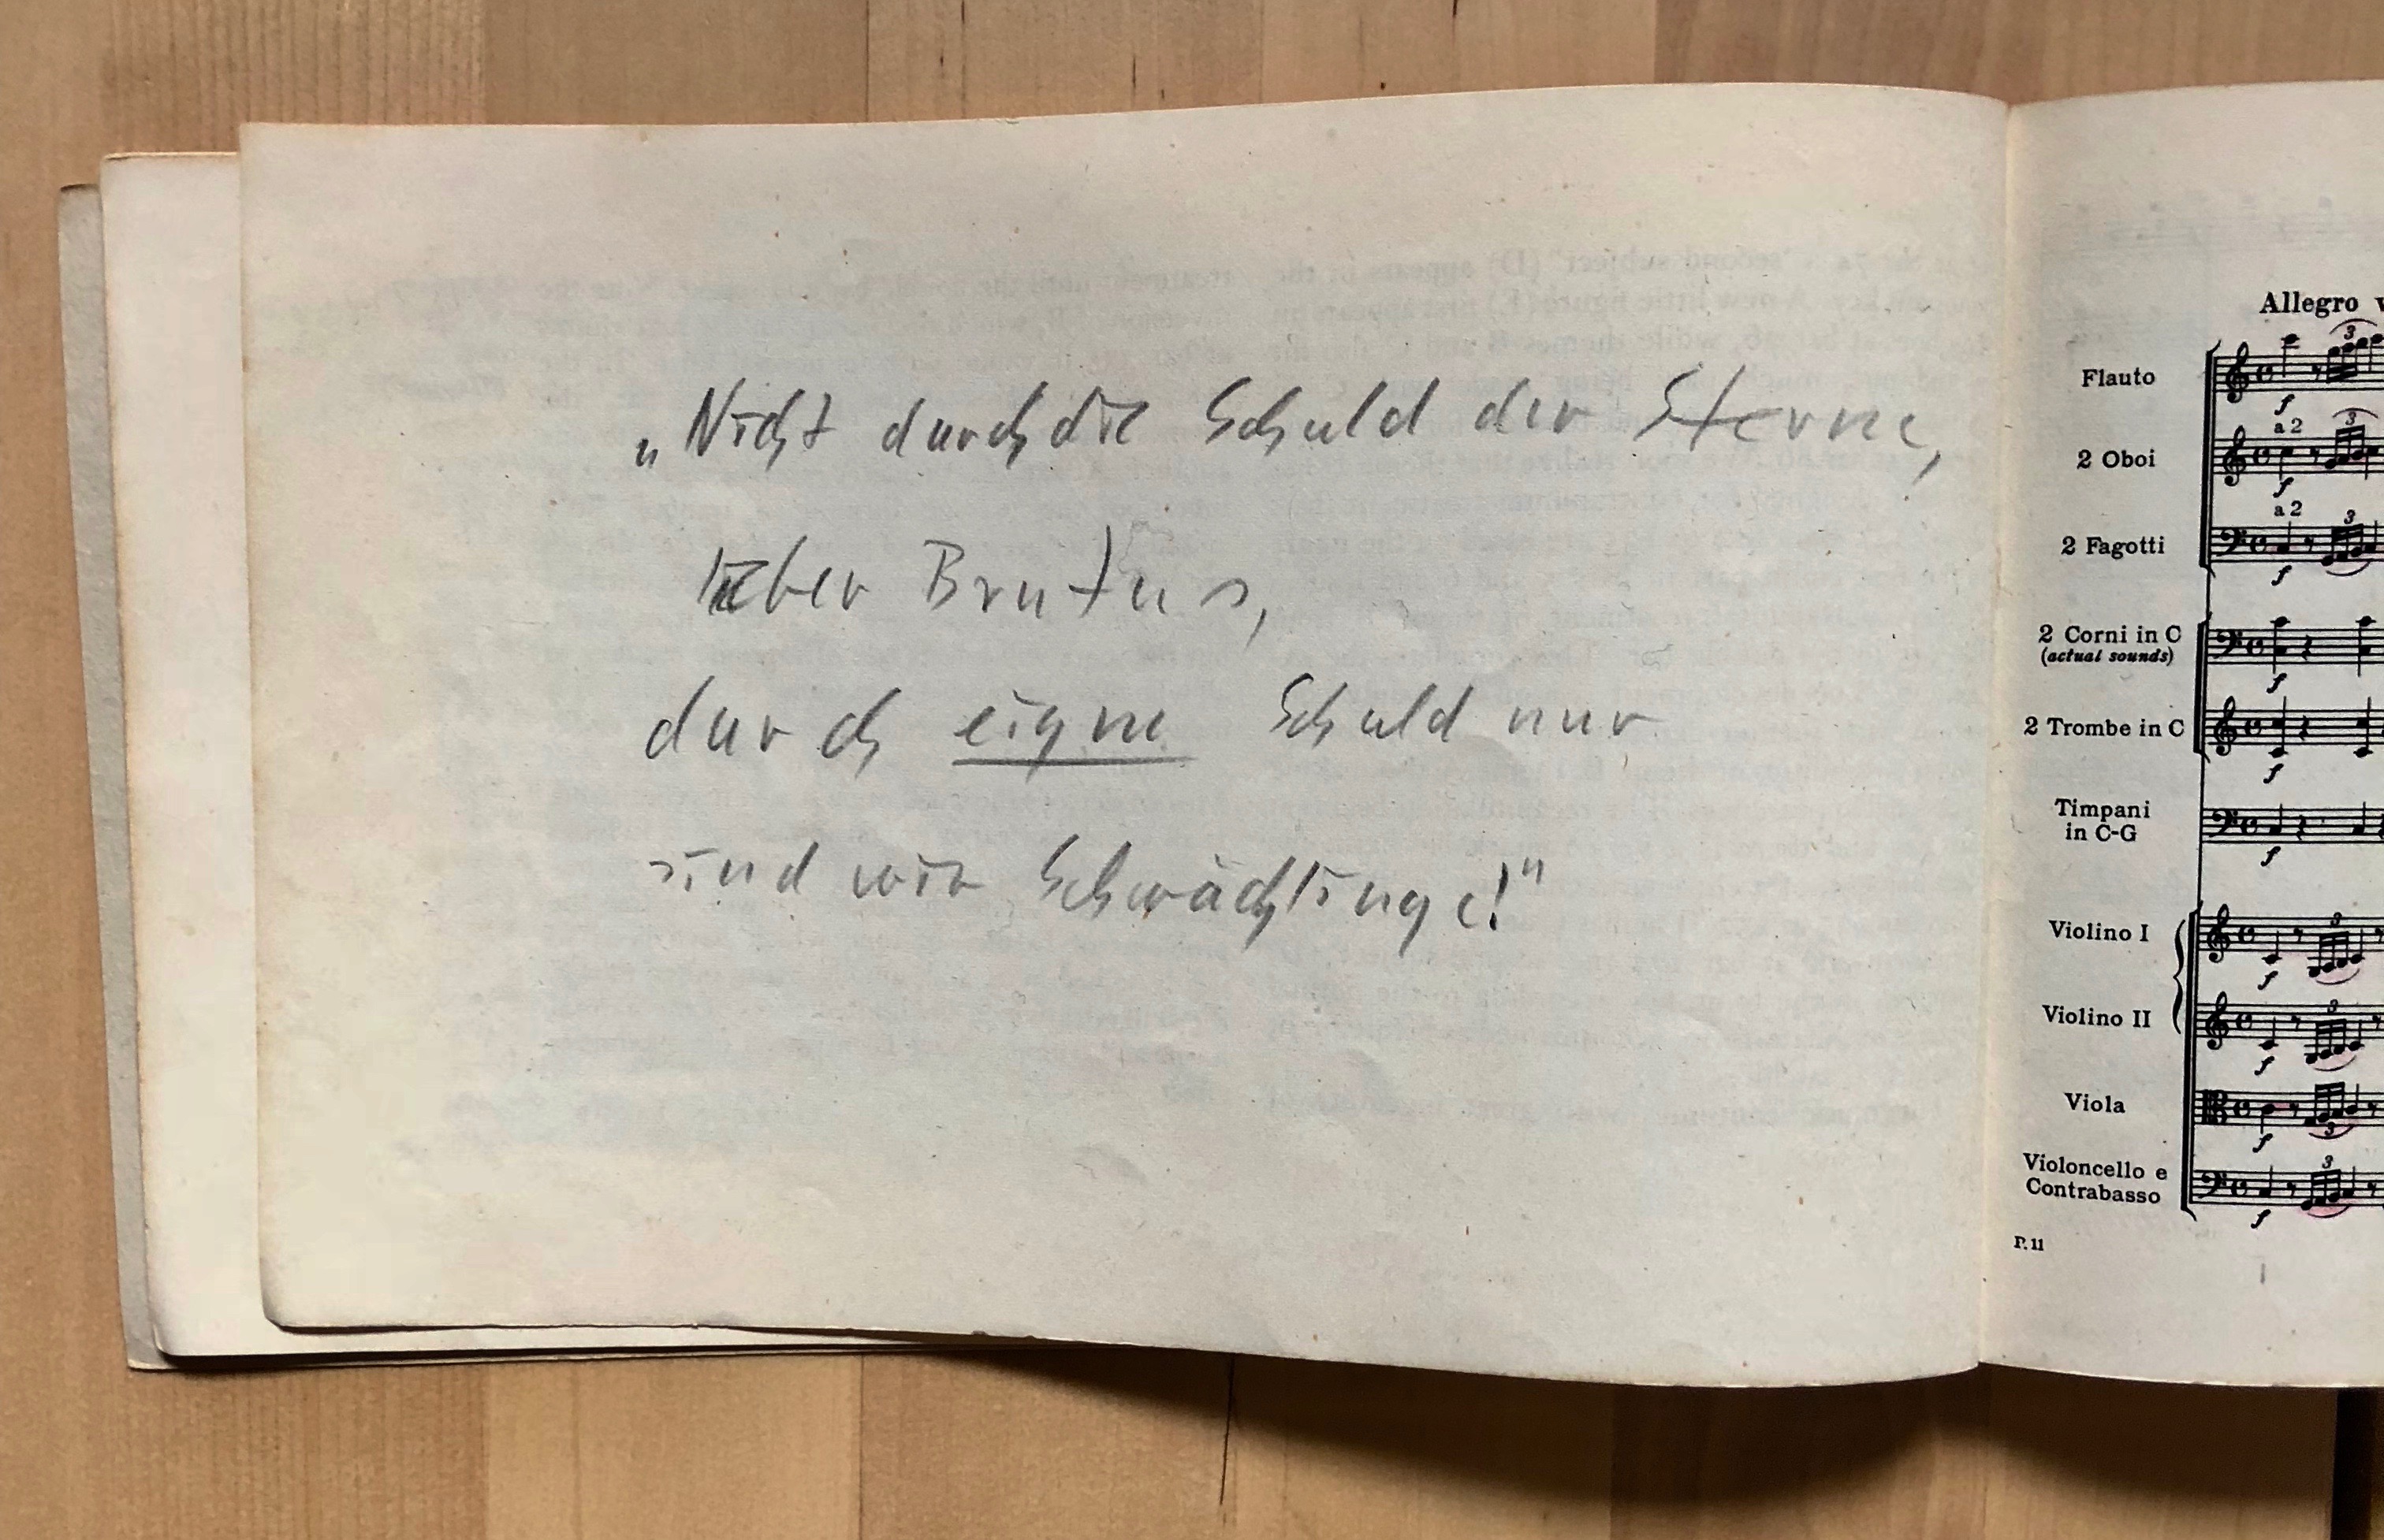 „Nicht durch die Schuld der Sterne,
lieber Brutus,
durch eigne Schuld nur
sind wir Schwächlinge!"
Allegro v
Flauto
2 Oboi
2 Fagotti
2 Corni in C
(actual sounds)
2 Trombe in C
Timpani
in C-G
Violino I
Violino II
Viola
Violoncello e
Contrabasso
P. 11
3
f
a 2
3
f
a 2
3
f
f
f
f
3
f
3
f
3
f
3
f